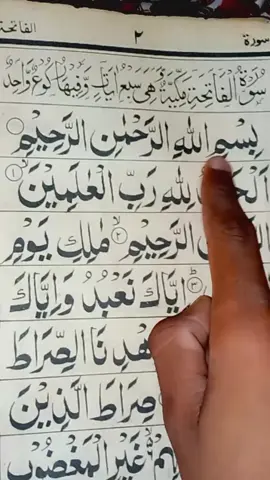 الفاتحة ٢ سورة
سُوْرَةُ الْفَاتِحَةِ مَكِّيَّةٌ وَّهِيَ سَبْعُ اٰيَاتٍ وَّفِيْهَا رُكُوْعٌ وَّاحِدٌ
بِسْمِ اللّٰهِ الرَّحْمٰنِ الرَّحِيْمِ
لِلّٰهِ رَبِّ الْعٰلَمِيْنَ ۙ ١
الرَّحِيْمِ ۙ ٢ مٰلِكِ يَوْمِ
٣ اِيَّاكَ نَعْبُدُ وَاِيَّاكَ
الصِّرَاطَ
صِرَاطَ الَّذِيْنَ
غَيْرِ الْمَغْضُوْبِ